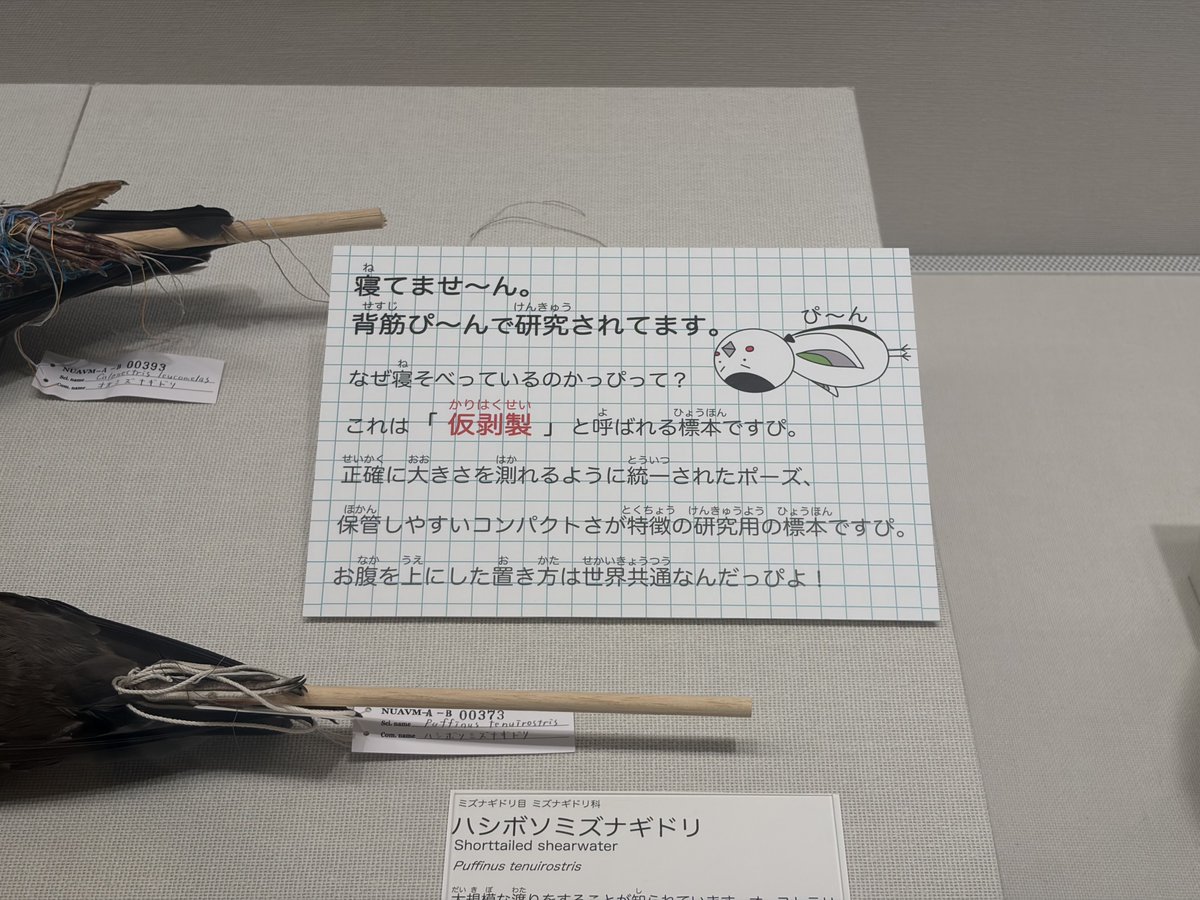 寝てませ〜ん。
背筋ぴ〜んで研究されてます。
ぴ〜ん
なぜ寝そべっているのかっぴって？
これは「仮剥製」と呼ばれる標本ですぴ。
正確に大きさを測れるように統一されたポーズ、
保管しやすいコンパクトさが特徴の研究用の標本ですぴ。
お腹を上にした置き方は世界共通なんだっぴよ！
NUAVM-A-B 00393
Sci. name Calonectris leucomelas
Com. name オオミズナギドリ
NUAVM-A-B 00373
Sci. name Puffinus tenuirostris
Com. name ハシボソミズナギドリ
ミズナギドリ目 ミズナギドリ科
ハシボソミズナギドリ
Shorttailed shearwater
Puffinus tenuirostris
大規模な渡りをすることが知られています。オーストラリ